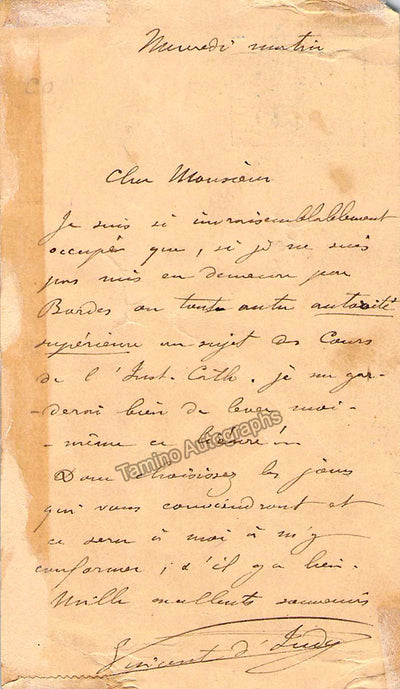 Mercredi matin
Cher Monsieur
Je suis si invraisemblablement
occupé que, si je ne suis
pas mis en demeure par
Bordes ou toute autre autorité
supérieure au sujet des Cours
de l'Inst. Cath. je me gar-
-derai bien de lever moi-
-même ce lièvre!
Tamino Autographs
Donc choisissez les jours
qui vous conviendront et
ce sera à moi à m'y
conformer, s'il y a lieu.
Mille excellents souvenirs
Vincent d'Indy